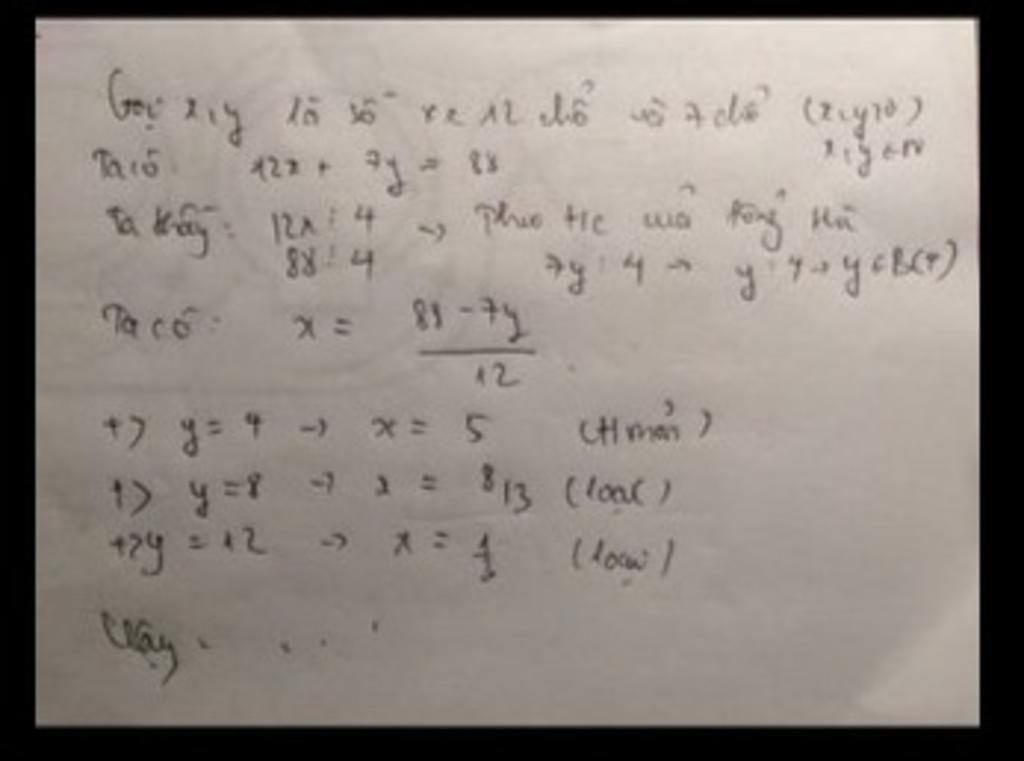 Gọi x, y là số xe 12 chổ và 7 chổ (x, y>0)
x, y ∈ N
Ta có: 12x + 7y = 88
Ta thấy: 12x ⋮ 4 → Theo t/c của tổng
88 ⋮ 4 7y ⋮ 4 → y ⋮ 4 → y ∈ B(4)
Ta có: x = (88 - 7y)/12
+> y = 4 → x = 5 (t/mản)
+> y = 8 → x = 8/3 (loại)
+> y = 12 → x = (loại)
Vậy . . .